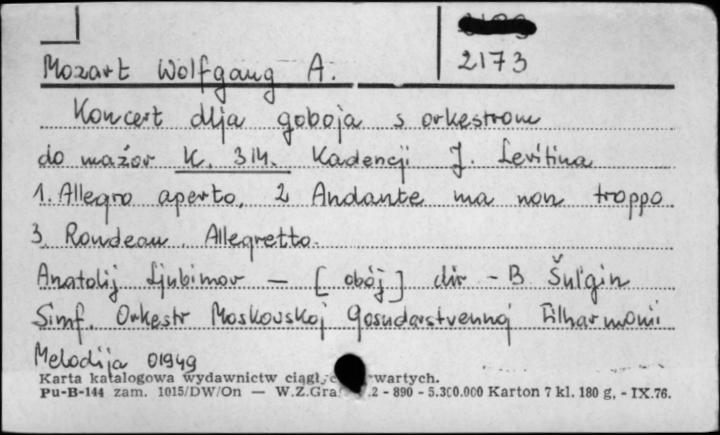 2173
Mozart Wolfgang A.
Koncert dlja goboja s orkestrom
do mažor K. 314. Kadencji J. Levitina
1. Allegro aperto, 2 Andante ma non troppo
3. Rondeau. Allegretto.
Anatolij Ljubimov — [obój] dir - B Šul'gin
Simf. Orkestr Moskovskoj Gosudarstvennoj Filharmonii
Melodija 01949
Karta katalogowa wydawnictw ciągł wartych.
Pu-B-144 zam. 1015/DW/On — W.Z.Graf .2 - 890 - 5.300.000 Karton 7 kl. 180 g. - IX.76.